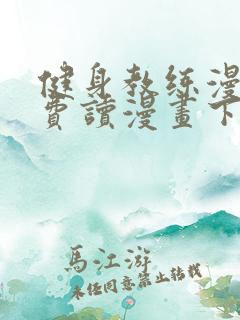 健身教练漫
費讀漫畫下
馬江游
未任同意禁止转载